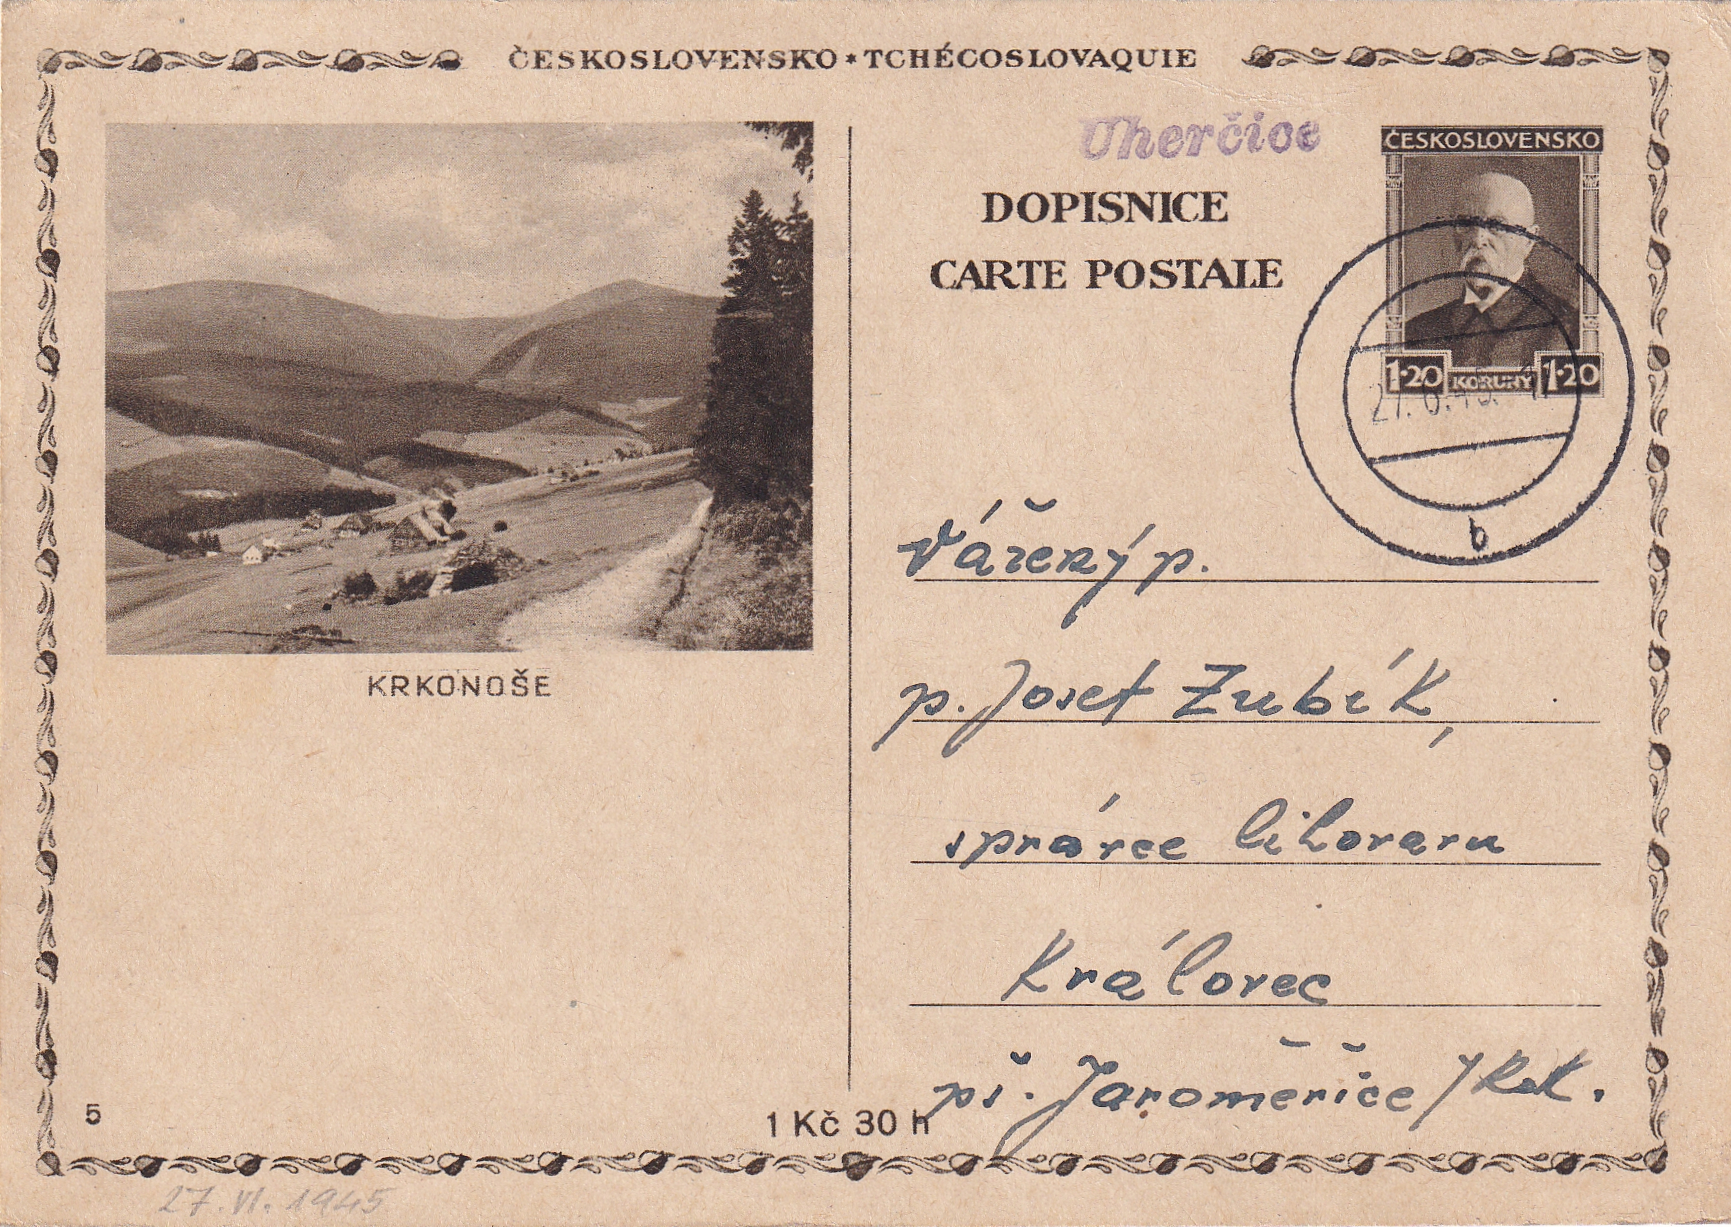 ČESKOSLOVENSKO * TCHÉCOSLOVAQUIE
Uherčice
DOPISNICE
CARTE POSTALE
ČESKOSLOVENSKO
1·20 KORUNY 1·20
27. 6. 45.
b
KRKONOŠE
Vážený p.
p. Josef Zubík,
správce lihovaru
Královec
pš. Jaroměřice / Rok.
5
1 Kč 30 h
27. VI. 1945